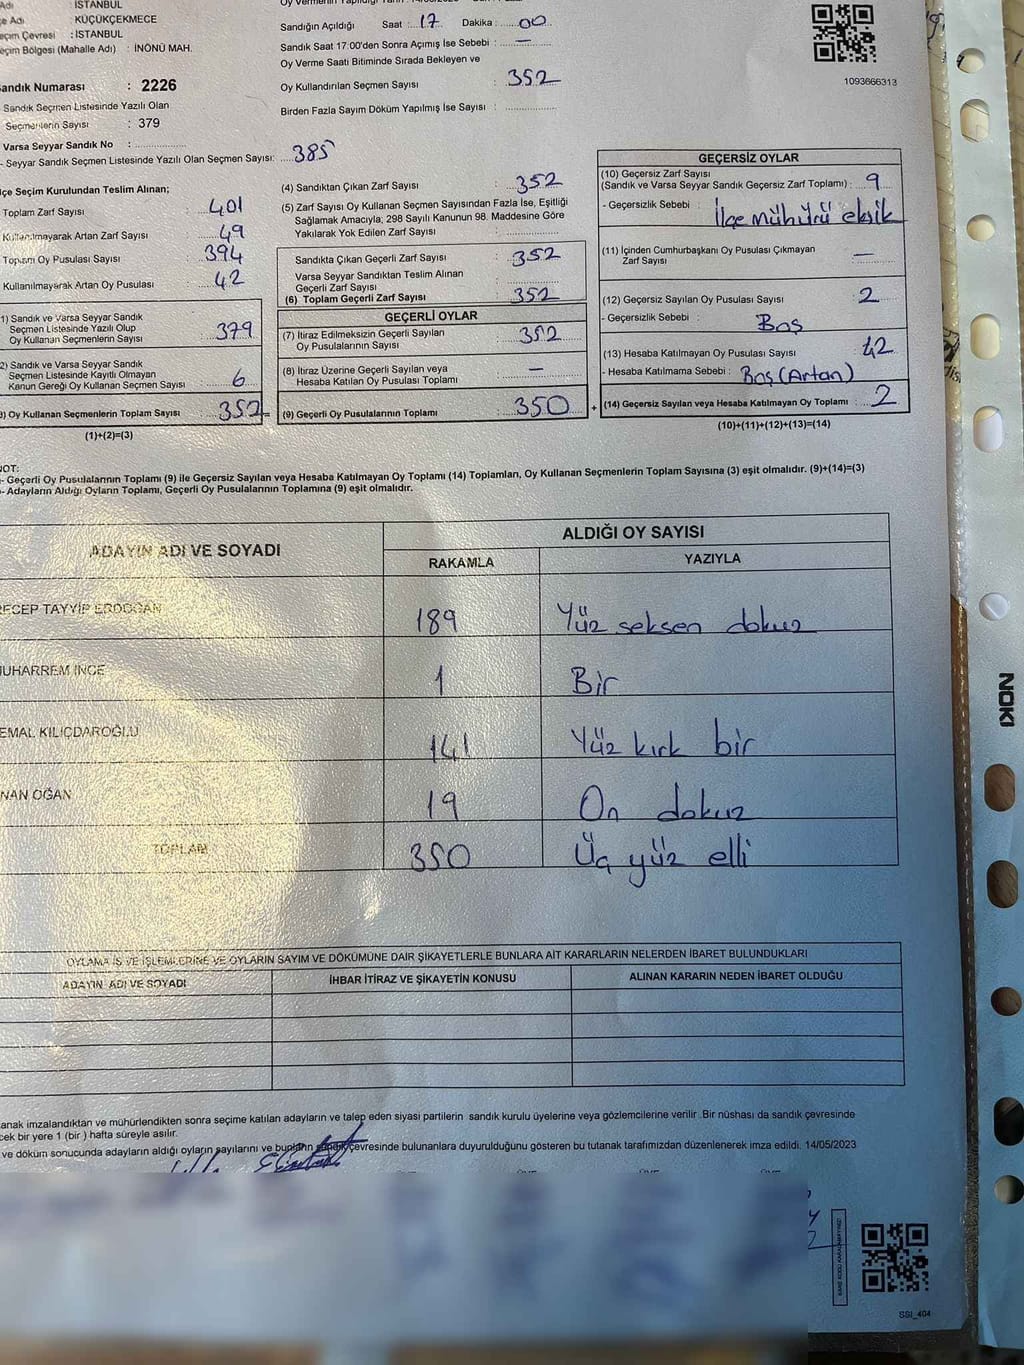 Adı : İSTANBUL
çe Adı : KÜÇÜKÇEKMECE
eçim Çevresi : İSTANBUL
eçim Bölgesi (Mahalle Adı) : İNÖNÜ MAH.
andık Numarası : 2226
Sandık Seçmen Listesinde Yazılı Olan
Seçmenlerin Sayısı : 379
Varsa Seyyar Sandık No :
- Seyyar Sandık Seçmen Listesinde Yazılı Olan Seçmen Sayısı: 385
Sandığın Açıldığı Saat : 17 Dakika : 00
Sandık Saat 17:00'den Sonra Açımış İse Sebebi : —
Oy Verme Saati Bitiminde Sırada Bekleyen ve
Oy Kullandırılan Seçmen Sayısı : 352
Birden Fazla Sayım Döküm Yapılmış İse Sayısı :
1093666313
lçe Seçim Kurulundan Teslim Alınan;
Toplam Zarf Sayısı : 401
Kullanılmayarak Artan Zarf Sayısı : 49
Toplam Oy Pusulası Sayısı : 394
Kullanılmayarak Artan Oy Pusulası : 42
1) Sandık ve Varsa Seyyar Sandık
Seçmen Listesinde Yazılı Olup
Oy Kullanan Seçmenlerin Sayısı : 379
2) Sandık ve Varsa Seyyar Sandık
Seçmen Listesinde Kayıtlı Olmayan
Kanun Gereği Oy Kullanan Seçmen Sayısı : 6
3) Oy Kullanan Seçmenlerin Toplam Sayısı : 352 =
(1)+(2)=(3)
(4) Sandıktan Çıkan Zarf Sayısı : 352
(5) Zarf Sayısı Oy Kullanan Seçmen Sayısından Fazla İse, Eşitliği
Sağlamak Amacıyla; 298 Sayılı Kanunun 98. Maddesine Göre
Yakılarak Yok Edilen Zarf Sayısı :
Sandıkta Çıkan Geçerli Zarf Sayısı : 352
Varsa Seyyar Sandıktan Teslim Alınan
Geçerli Zarf Sayısı :
(6) Toplam Geçerli Zarf Sayısı : 352
GEÇERLİ OYLAR
(7) İtiraz Edilmeksizin Geçerli Sayılan
Oy Pusulalarının Sayısı : 352
(8) İtiraz Üzerine Geçerli Sayılan veya
Hesaba Katılan Oy Pusulası Toplamı : —
(9) Geçerli Oy Pusulalarının Toplamı : 350 +
GEÇERSİZ OYLAR
(10) Geçersiz Zarf Sayısı
(Sandık ve Varsa Seyyar Sandık Geçersiz Zarf Toplamı) : 9
- Geçersizlik Sebebi : İlçe mühürü eksik
(11) İçinden Cumhurbaşkanı Oy Pusulası Çıkmayan
Zarf Sayısı : —
(12) Geçersiz Sayılan Oy Pusulası Sayısı : 2
- Geçersizlik Sebebi : Boş
(13) Hesaba Katılmayan Oy Pusulası Sayısı : 42
- Hesaba Katılmama Sebebi : Boş (Artan)
(14) Geçersiz Sayılan veya Hesaba Katılmayan Oy Toplamı : 2
(10)+(11)+(12)+(13)=(14)
NOT:
- Geçerli Oy Pusulalarının Toplamı (9) ile Geçersiz Sayılan veya Hesaba Katılmayan Oy Toplamı (14) Toplamları, Oy Kullanan Seçmenlerin Toplam Sayısına (3) eşit olmalıdır. (9)+(14)=(3)
- Adayların Aldığı Oyların Toplamı, Geçerli Oy Pusulalarının Toplamına (9) eşit olmalıdır.
ADAYIN ADI VE SOYADI ALDIĞI OY SAYISI
RAKAMLA YAZIYLA
RECEP TAYYİP ERDOĞAN 189 Yüz seksen dokuz
MUHARREM İNCE 1 Bir
EMAL KILIÇDAROĞLU 141 Yüz kırk bir
NAN OĞAN 19 On dokuz
TOPLAM 350 Üç yüz elli
OYLAMA İŞ VE İŞLEMLERİNE VE OYLARIN SAYIM VE DÖKÜMÜNE DAİR ŞİKAYETLERLE BUNLARA AİT KARARLARIN NELERDEN İBARET BULUNDUKLARI
ADAYIN ADI VE SOYADI İHBAR İTİRAZ VE ŞİKAYETİN KONUSU ALINAN KARARIN NEDEN İBARET OLDUĞU
anak imzalandıktan ve mühürlendikten sonra seçime katılan adayların ve talep eden siyasi partilerin sandık kurulu üyelerine veya gözlemcilerine verilir. Bir nüshası da sandık çevresinde
cek bir yere 1 (bir ) hafta süreyle asılır.
ve döküm sonucunda adayların aldığı oyların sayılarını ve bunların sandık çevresinde bulunanlara duyurulduğunu gösteren bu tutanak tarafımızdan düzenlenerek imza edildi. 14/05/2023
SSİ_404
NOKI